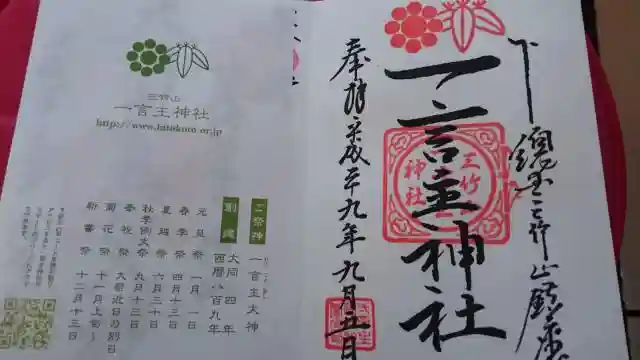 下總国三竹山鎮座
一言主神社
三竹山
神社
奉拝 平成二十九年九月五日
三竹山
一言主神社
http://www.hitokoto.or.jp
ご祭神
一言主大神
創建
大同四年
西暦八百九年
元旦祭 一月一日
春季祭 四月十三日
夏越祭 六月三十日
秋季例大祭 九月十三日
春祝祭 大祭近日の別日
菊花祭 十一月上旬~
新嘗祭 十二月十三日